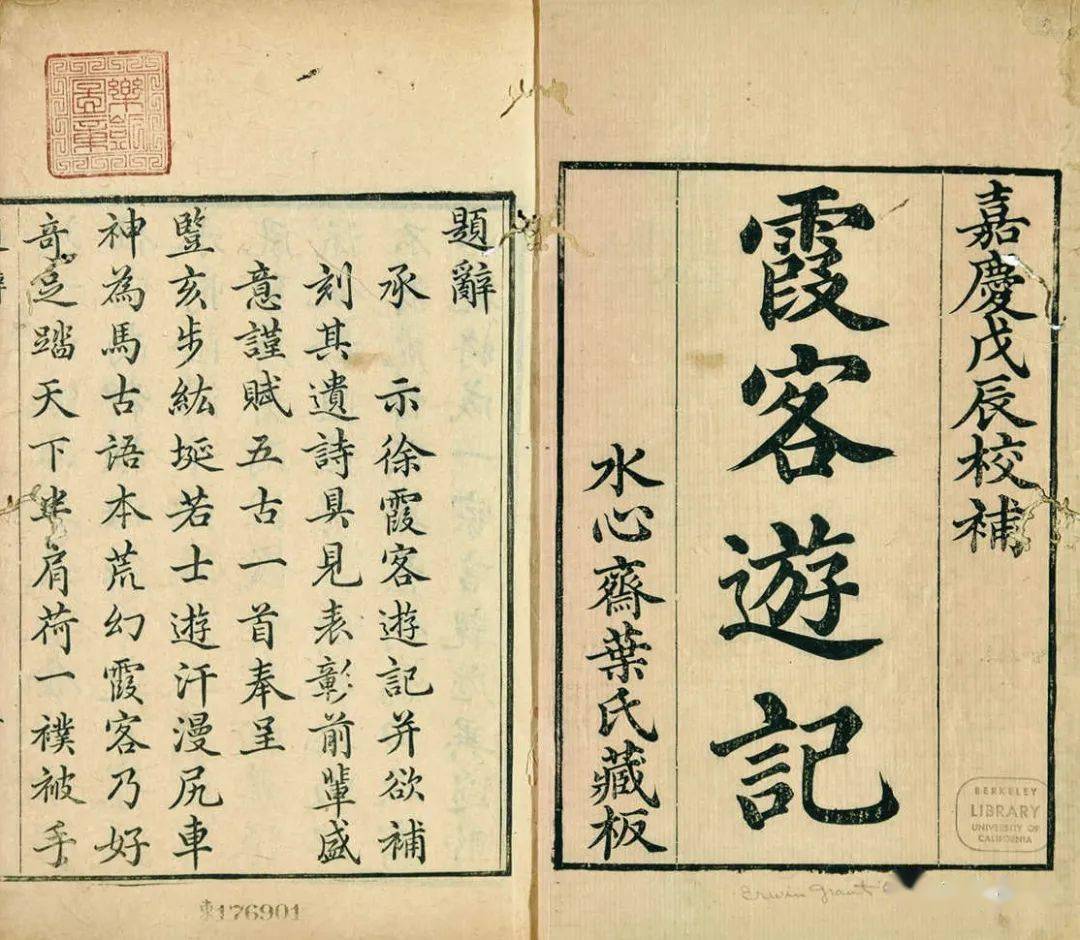 嘉慶戊辰校補
霞客遊記
水心齋葉氏藏板
BERKELEY
LIBRARY
UNIVERSITY OF
CALIFORNIA
Erwin Grant
題辭
承 示徐霞客遊記并欲補
刻其遺詩具見表彰前輩盛
意謹賦五古一首奉呈
豎亥步紘埏若士遊汗漫尻車
神為馬古語本荒幻霞客乃好
竒足踏天下半肩荷一襆被手
176901